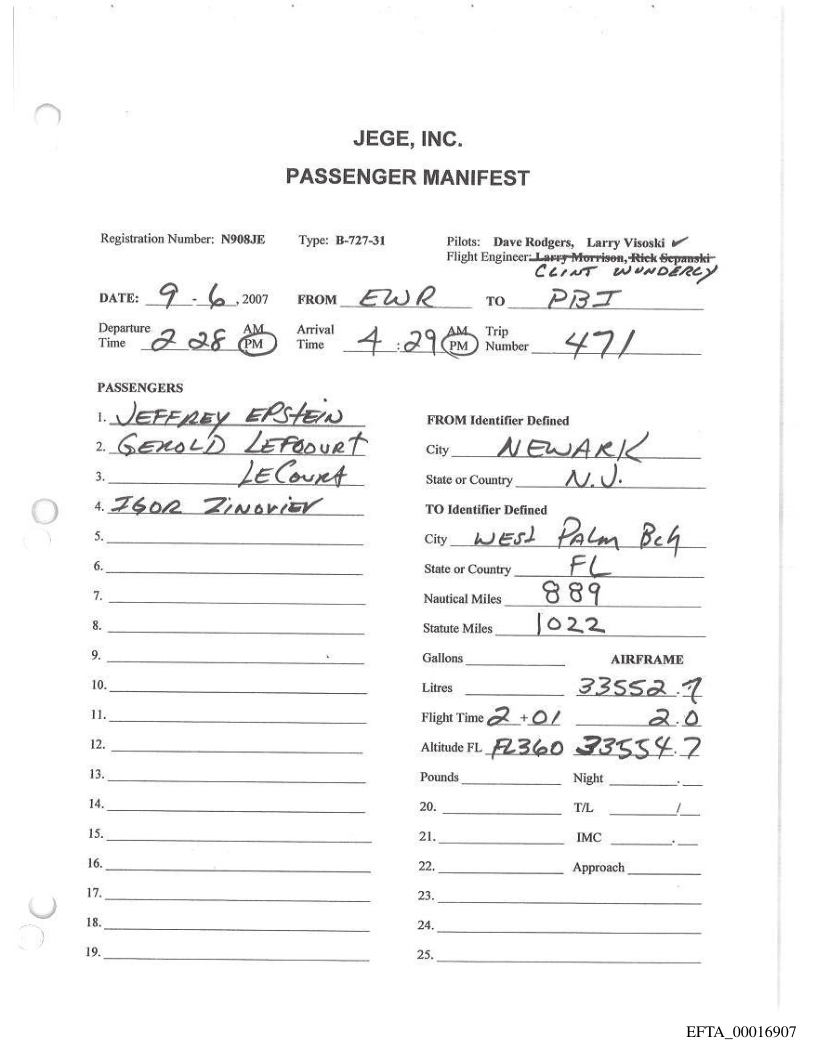 JEGE, INC.
PASSENGER MANIFEST
Registration Number: N908JE Type: B-727-31 Pilots: Dave Rodgers, Larry Visoski ✓
Flight Engineer: Larry Morrison, Rick Sepanski
CLINT WUNDERLY
DATE: 9 - 6, 2007 FROM EWR TO PBI
Departure Time 2 28 AM PM Arrival Time 4 : 29 AM PM Trip Number 471
PASSENGERS
1. JEFFREY EPSTEIN
2. GEROLD LEFCOURT
3. LECOURT
4. IGOR ZINOVIEV
5.
6.
7.
8.
9.
10.
11.
12.
13.
14.
15.
16.
17.
18.
19.
FROM Identifier Defined
City NEWARK
State or Country N.J.
TO Identifier Defined
City WEST PALM BCH
State or Country FL
Nautical Miles 889
Statute Miles 1022
Gallons AIRFRAME
Litres 33552.7
Flight Time 2 + 01 2.0
Altitude FL FL360 33554.7
Pounds Night .
20. T/L /
21. IMC .
22. Approach
23.
24.
25.
EFTA_00016907